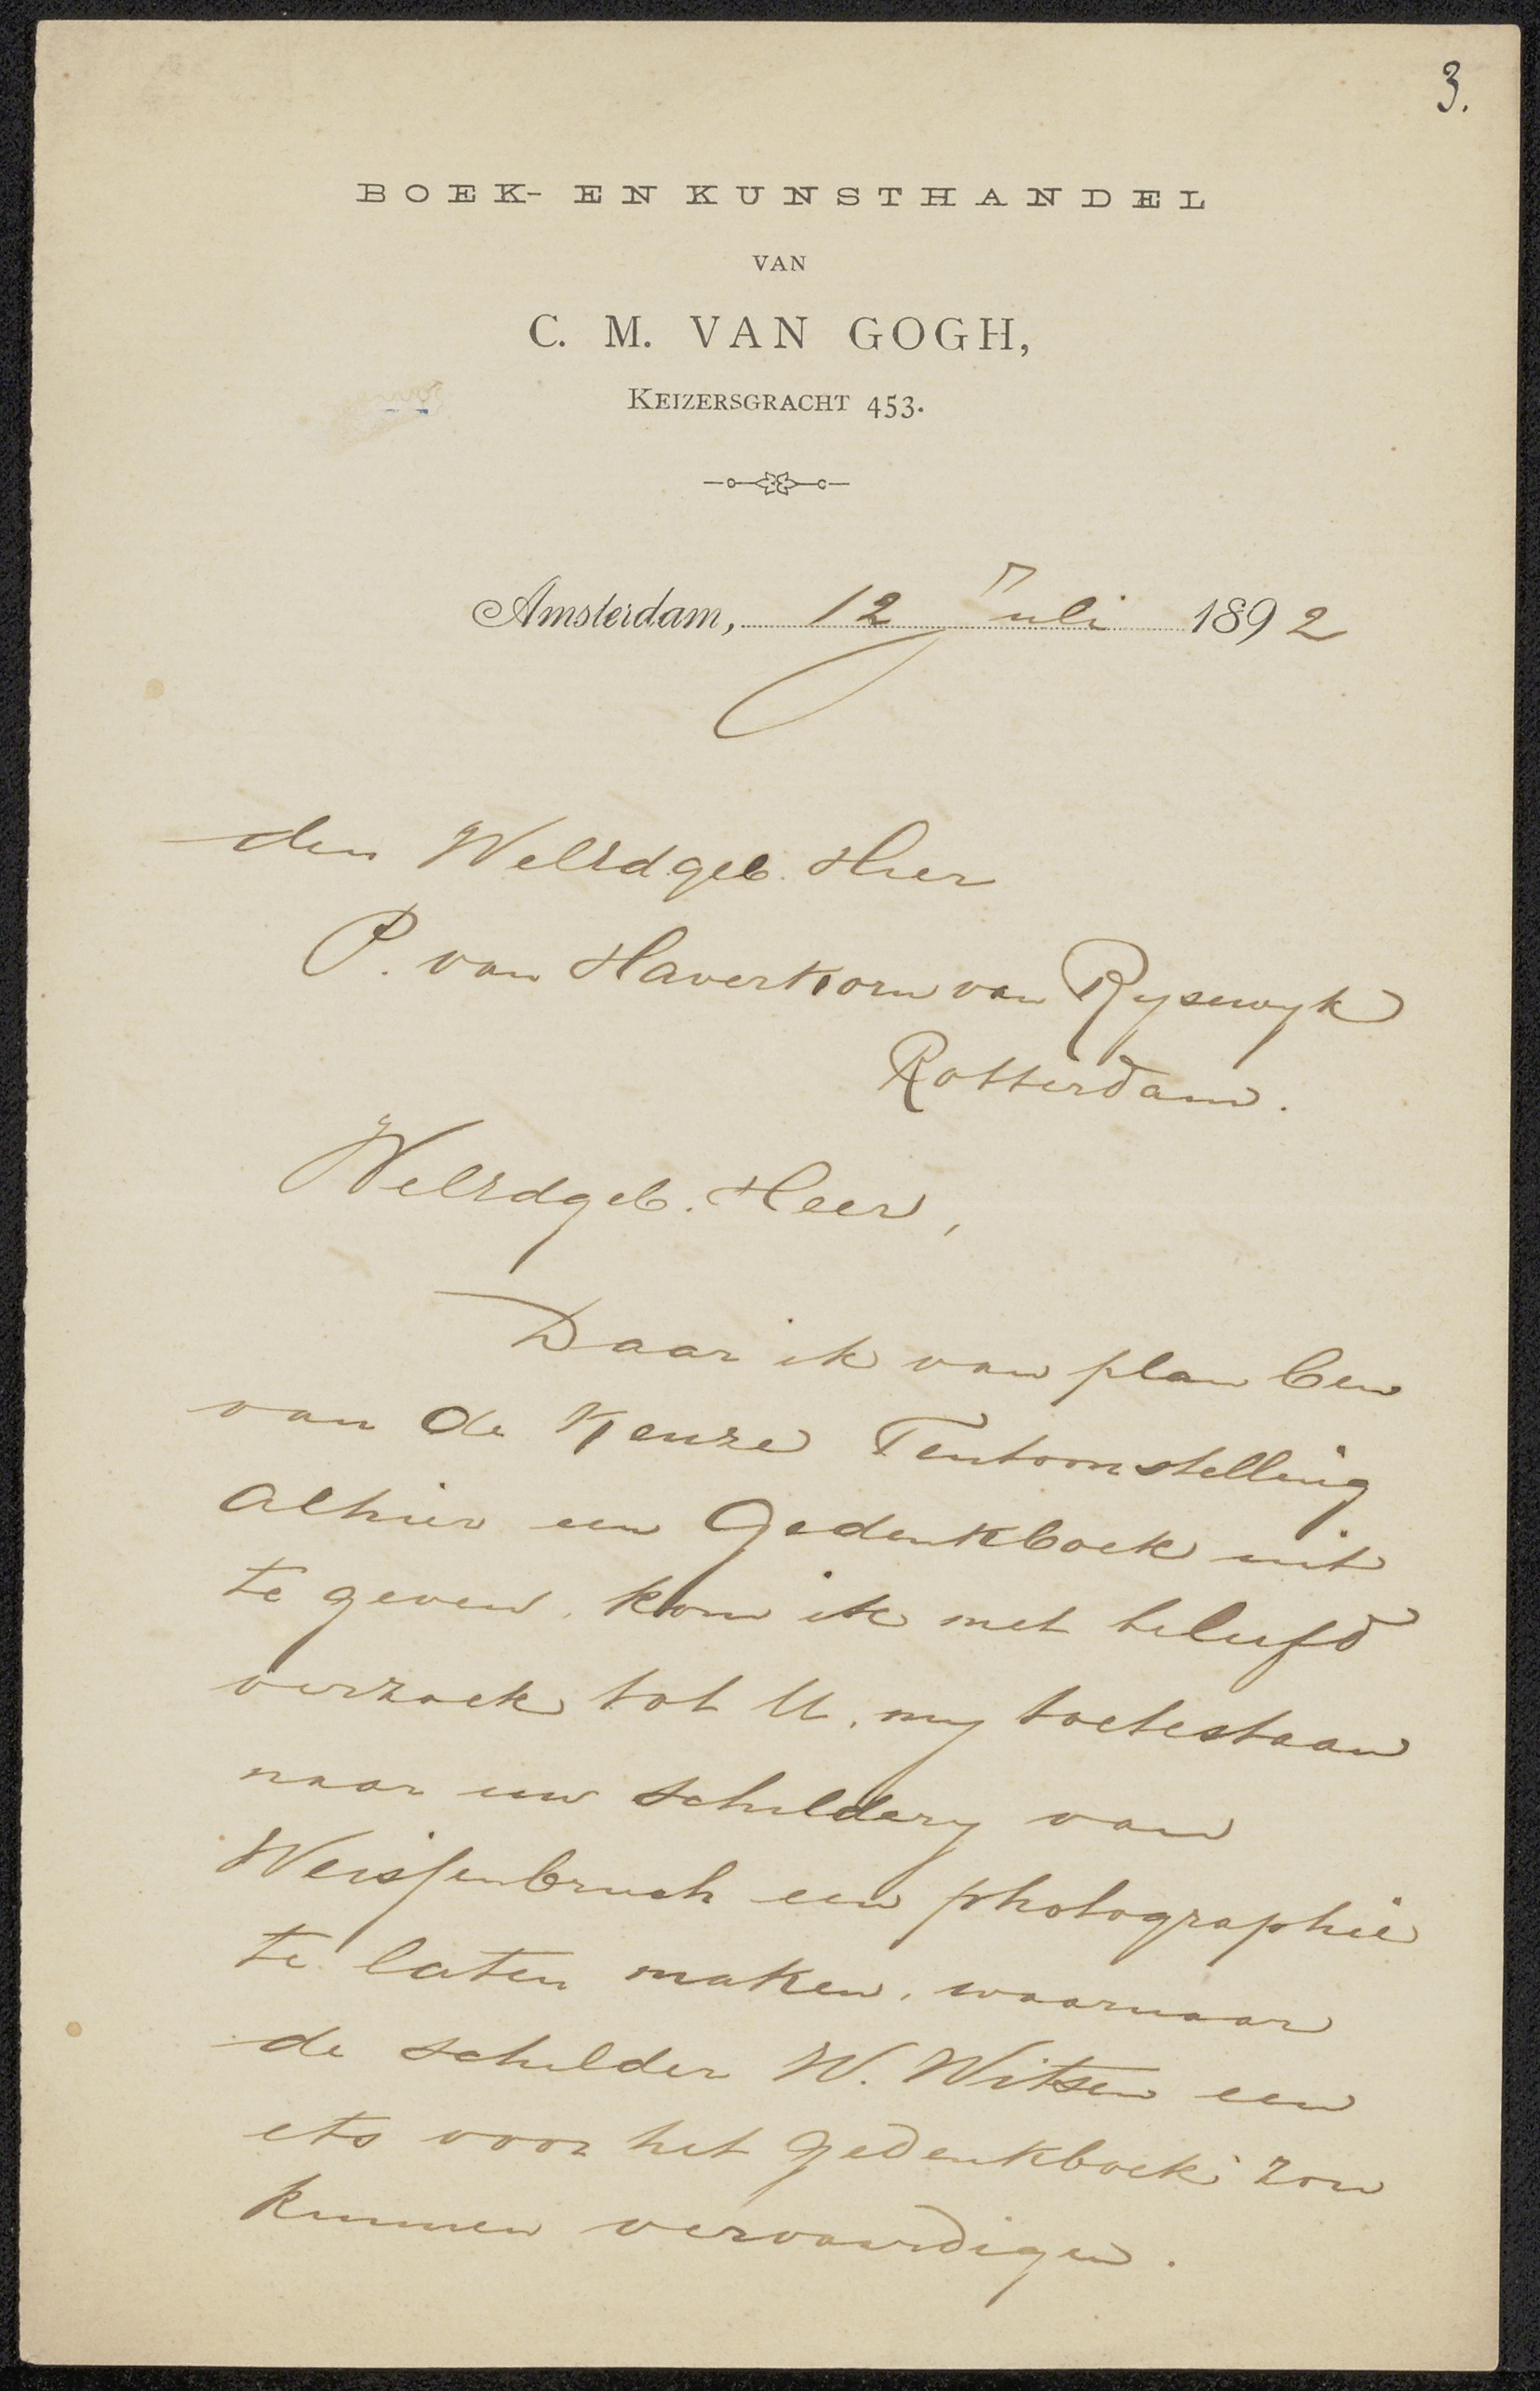 3.
BOEK- EN KUNSTHANDEL
VAN
C. M. VAN GOGH,
KEIZERSGRACHT 453.
Amsterdam, 12 Juli 1892
den WelEdgeb. Heer
P. van Haverkorn van Rysewyk
Rotterdam.
WelEdgeb. Heer,
Daar ik van plan ben
van de Keuze Tentoonstelling
alhier een Gedenkboek uit
te geven, kom ik met beleefd
verzoek tot U, my toetestaan
naar uw schildery van
Weissenbruch een photographie
te laten maken, waarnaar
de schilder W. Witsen een
ets voor het gedenkboek zou
kunnen vervaardigen.